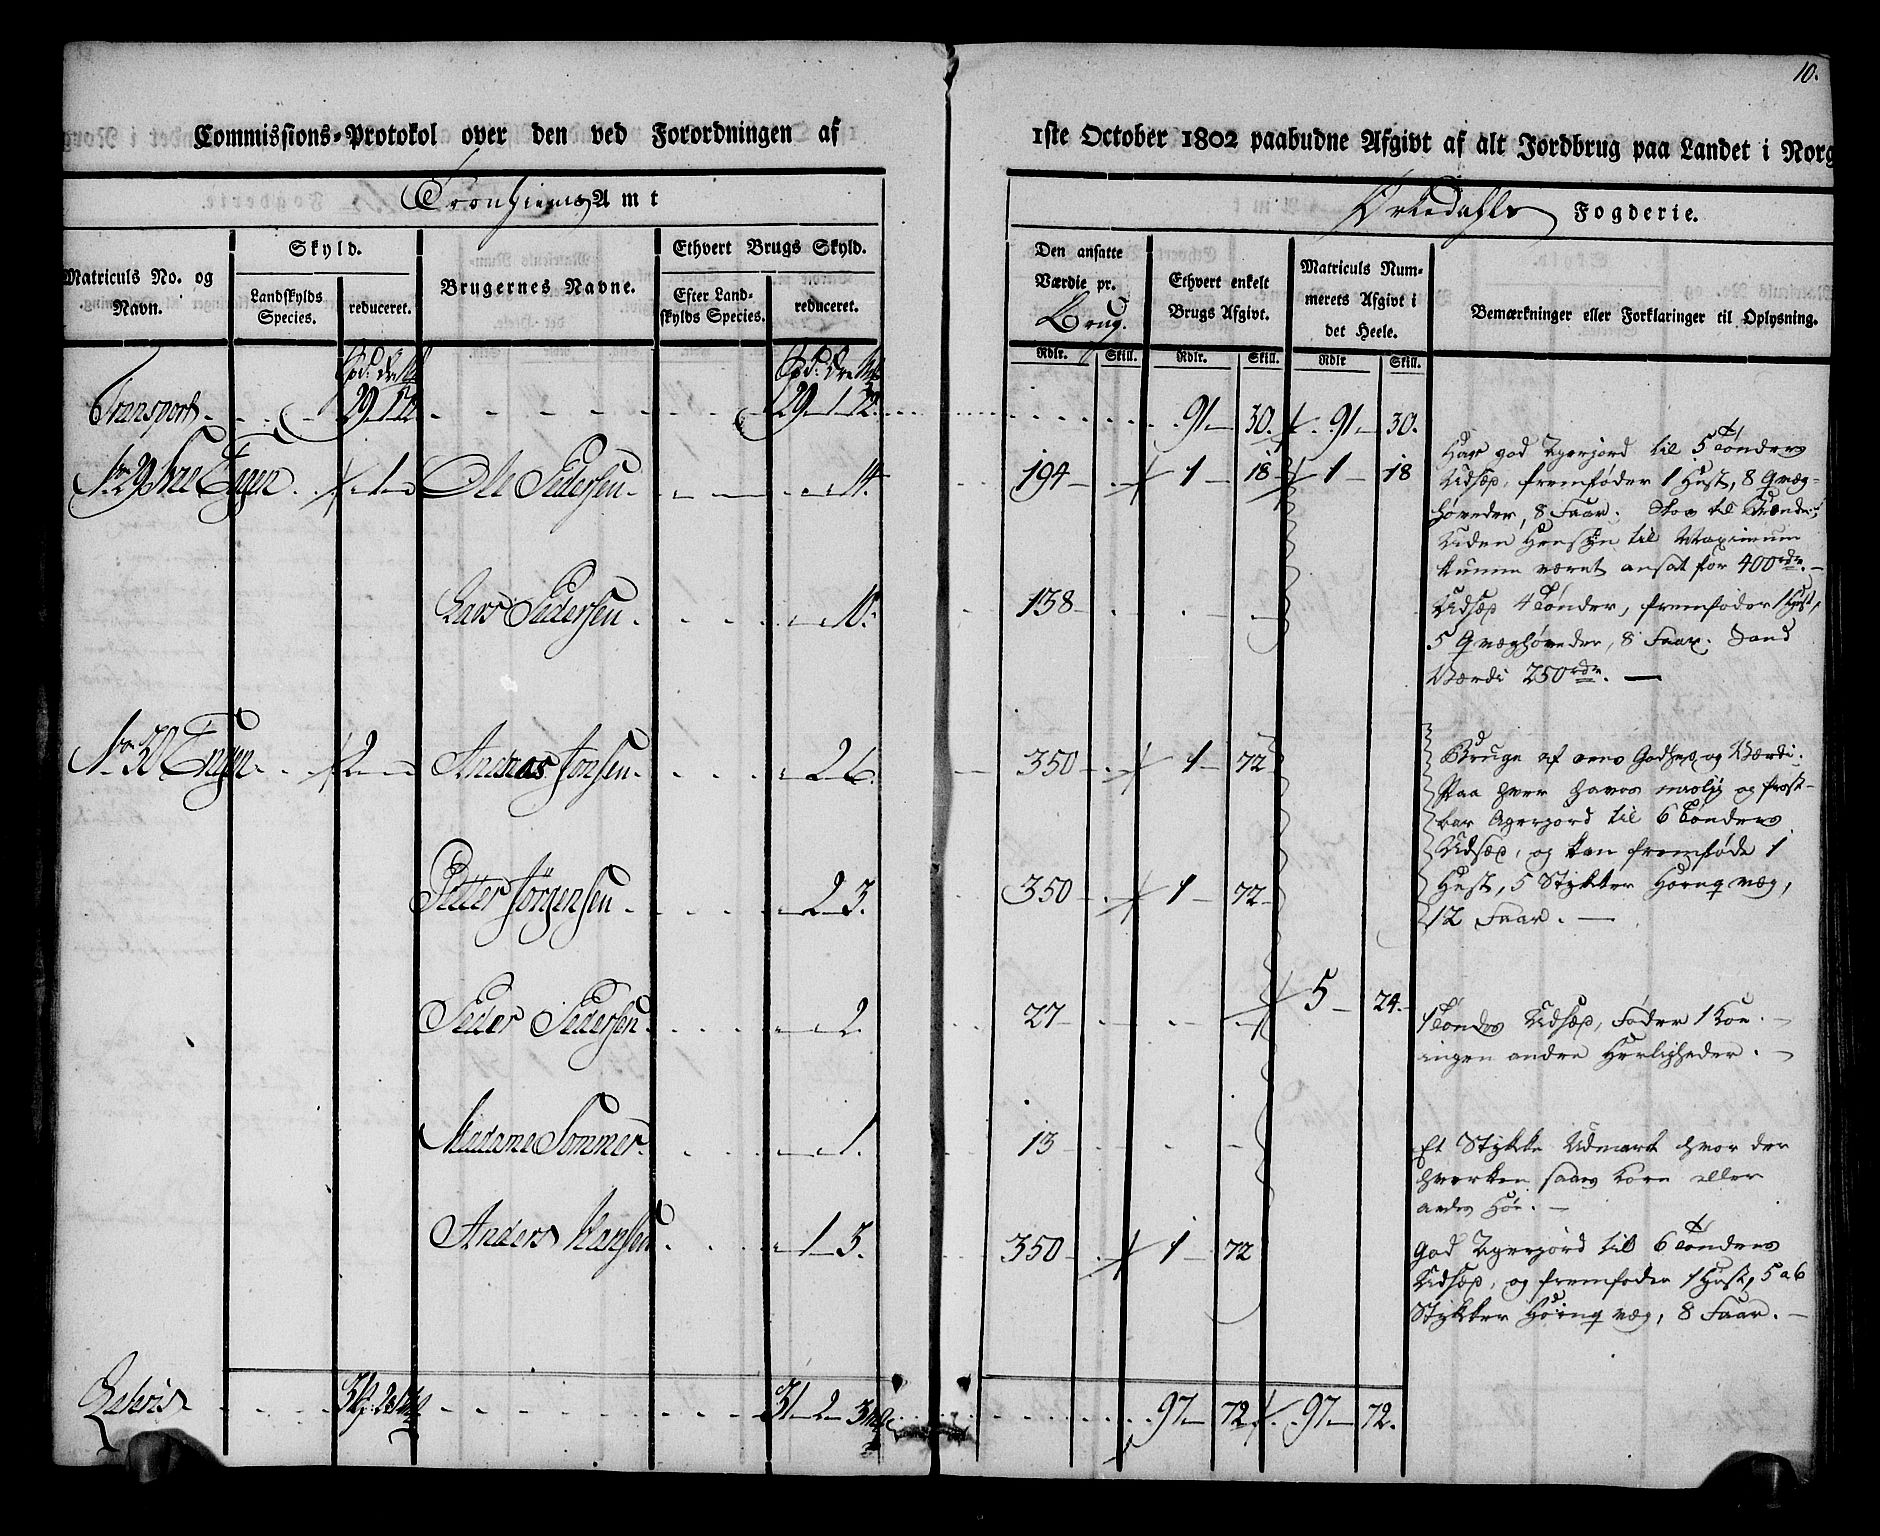 10.
Commissions-Protokol over den ved Forordningen af 1ste October 1802 paabudne Afgivt af alt Jordbrug paa Landet i Norg
Tronhiems Amt
Ørkedahls Fogderie.
Matriculs No. og Navn.
Skyld.
Landskylds Species.
reduceret.
Brugernes Navne.
Ethvert Brugs Skyld.
Efter Landskylds Species.
reduceret.
Den ansatte Værdie pr. Brug.
Ethvert enkelt Brugs Afgivt.
Matriculs Nummerets Afgivt i det Heele.
Bemærkninger eller Forklaringer til Oplysning.
Rdlr. Skill. Rdlr. Skill. Rdlr Skill.
Transport 29 1 12 29 1 12. 91 30. 91 30.
No. 29 Engen 1 Ole Pedersen 14. 194 1 18 1 18
Har god Agerjord til 5 Tønders
Udsæd, fremføder 1 Hest, 8 Qvæg-
høveder, 8 Faar. Skov til Brænde,
Uden Hensyn til Maximum
kunne været ansat for 400 rdr.
Lars Pedersen 10. 138
Udsæd 4 Tønder, fremføder 1 Hest,
5 Qvæghøveder, 8 Faar. Sand
Værdi 250 rdr.
No. 30 Engen 2 Andreas Jonsen 2 6. 350 1 72
Bruge af eens Godhed og Værdi.
Paa hver haves maalig og frost-
bar Agerjord til 6 Tønders
Udsæd, og kan fremføde 1
Hest, 5 Stykker Hornqvæg,
12 Faar.
Petter Jörgensen 2 3. 350 1 72
Peder Pedersen 2. 27 5 24.
1 Tøndes Udsæd, Føder 1 Koe.
ingen andre Herligheder.
Madame Sommer 1. 13
Et Stykke Udmark hvor der
hverken saaes Korn eller
avles Høe.
Anders Hansen 1 3. 350 1 72
God Agerjord til 6 Tønders
Udsæd, og fremføder 1 Hest, 5 a 6
Stykker Hornqvæg, 8 Faar.
Lateris 31 2 31 2 97 72 97 72.